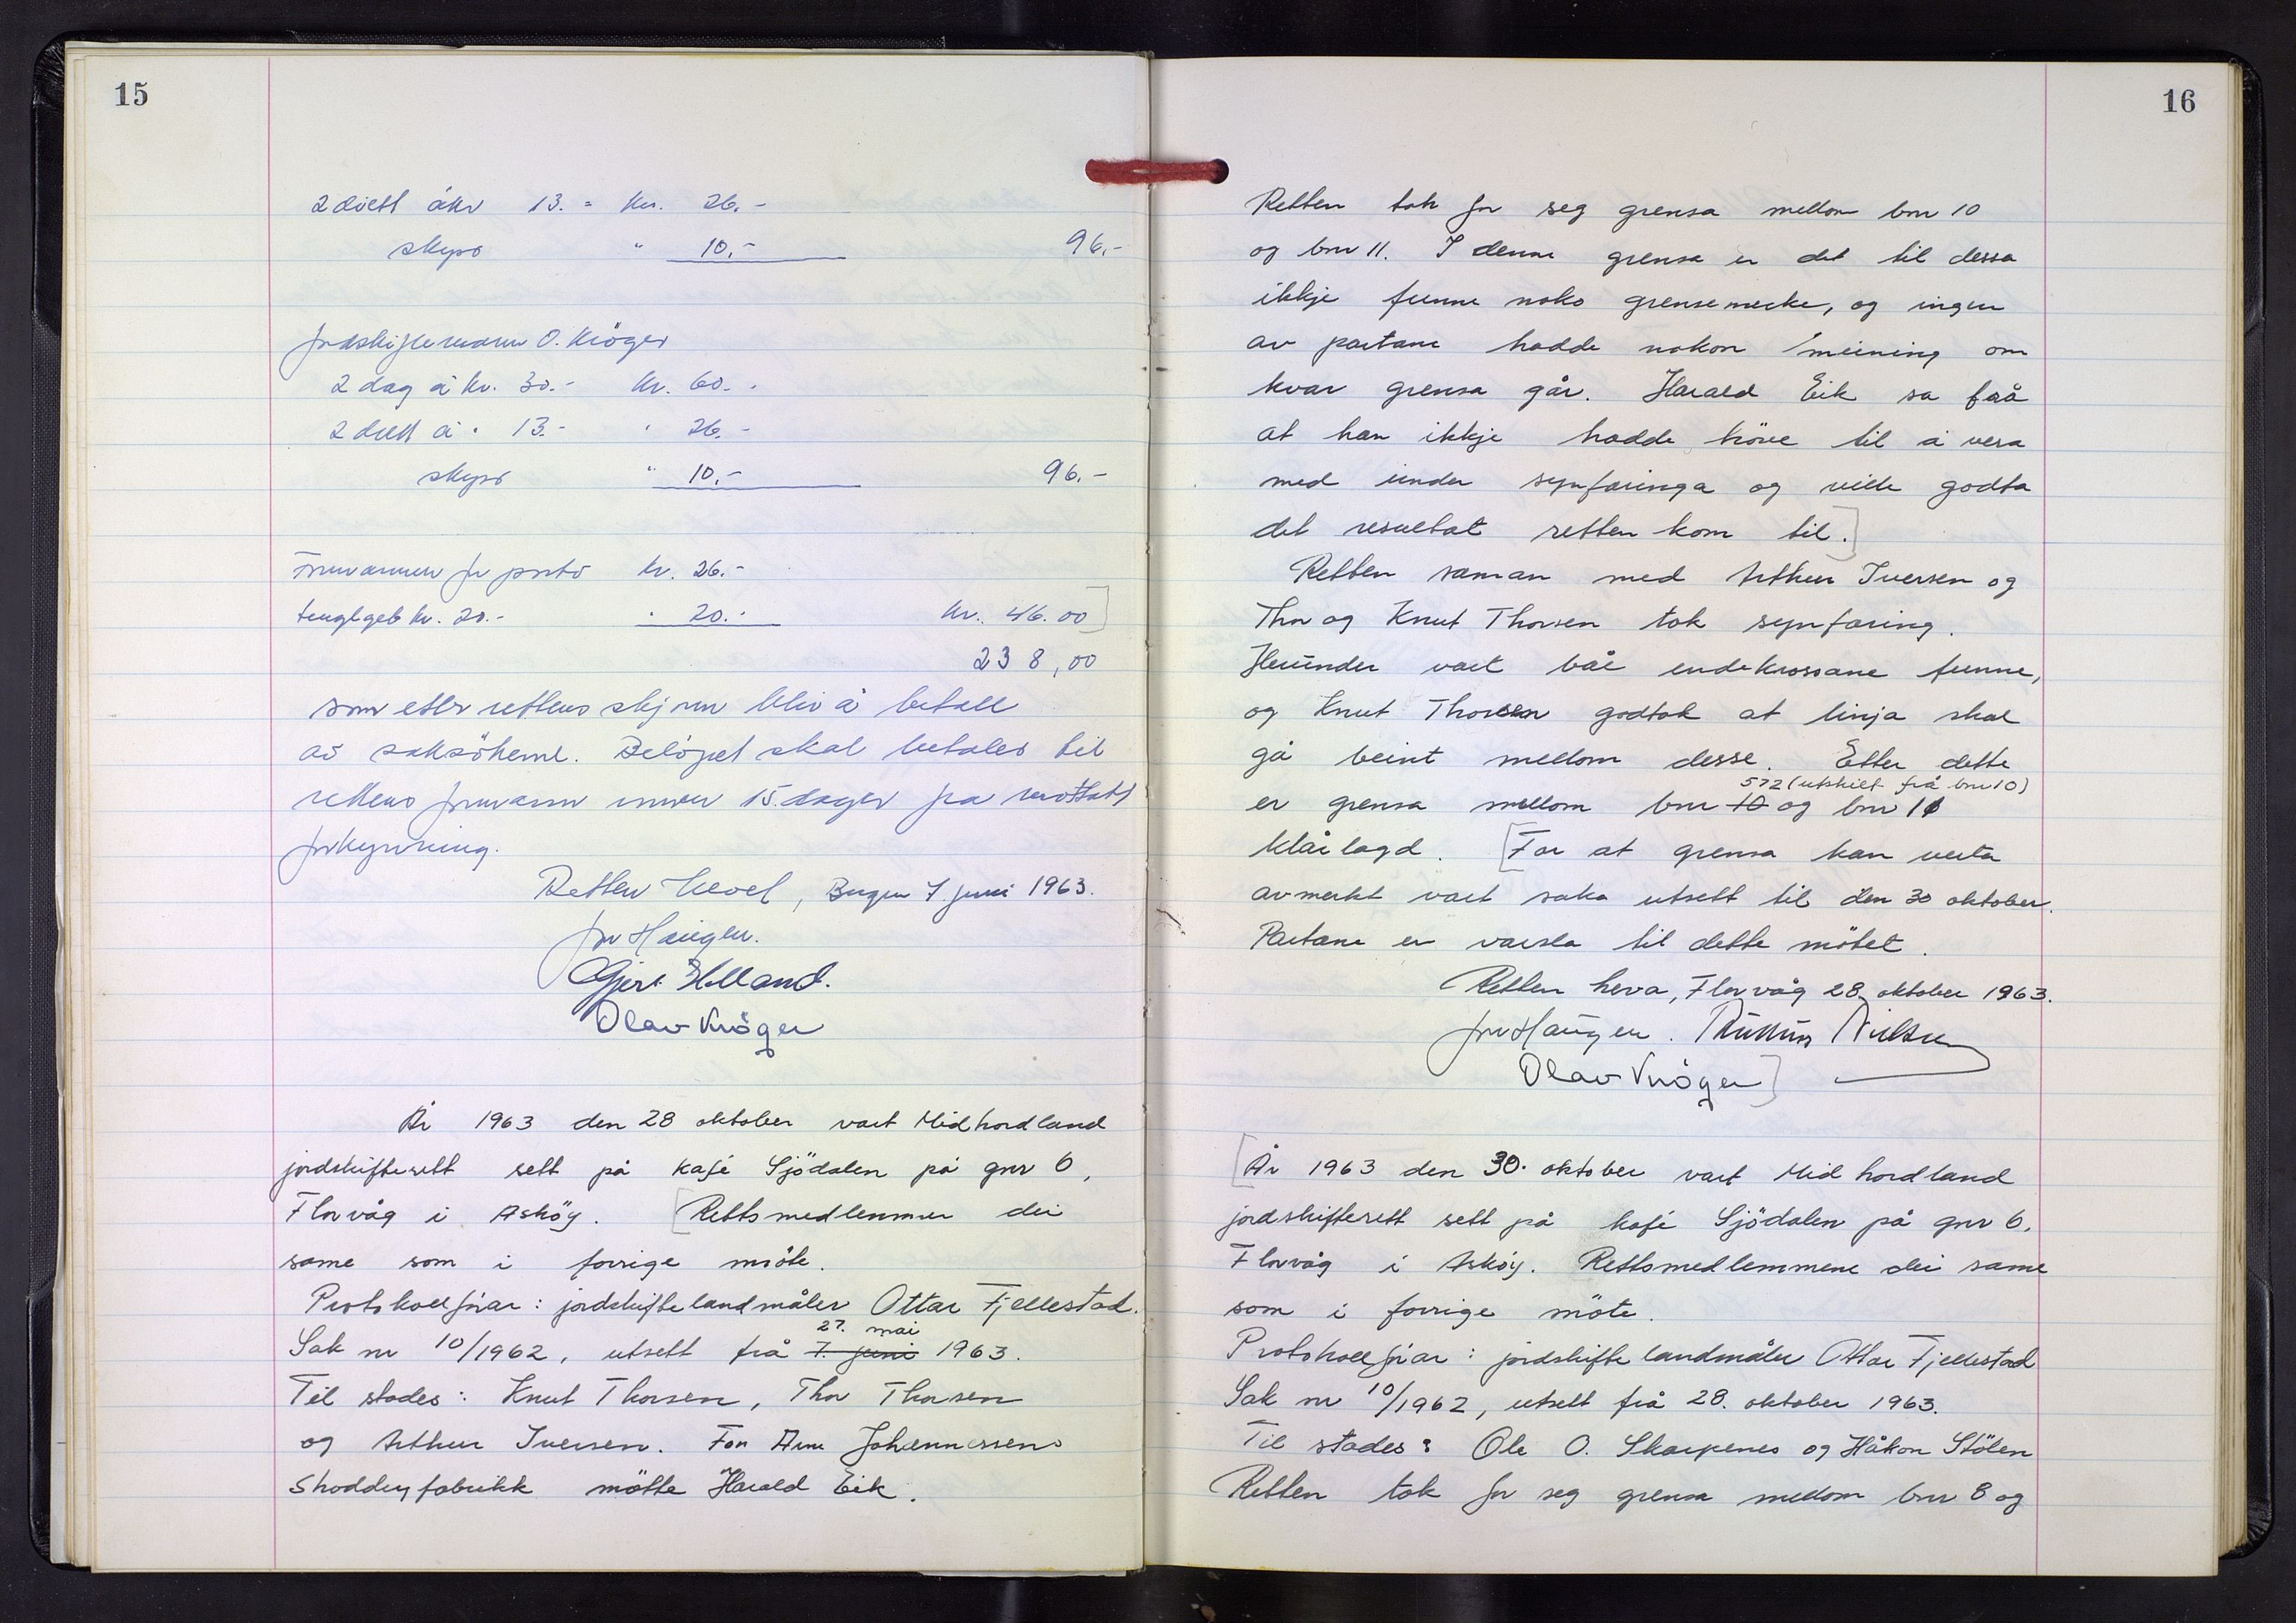 15
2 diett á kr 13.- kr. 26.-
skyss " 10.- 96.-
jordskiftemann O. Kröger
2 dag á kr. 30.- kr. 60.-
2 diett á " 13.- " 26.-
skyss " 10.- 96.-
Formannen for porto kr. 26.-
tinglgeb kr. 20.- " 20.- kr. 46.00]
238,00
som etter rettens skjønn bliv å betale
av saksökerne. Belöpet skal betales til
rettens formann innen 15. dager fra mottatt
forkynning.
Retten hevet, Bergen 7. juni 1963.
Jon Haugen.
Gjert Holland.
Olav Kröger
År 1963 den 28 oktober vart Midhordland
jordskifterett sett på kafé Sjödalen på gnr 6,
Florvåg i Asköy. [Rettsmedlemmer dei
same som i forrige möte.
Protokollförar: jordskiftelandmåler Ottar Fjellestad.
27. mai
Sak nr 10/1962, utsett frå 7. juni 1963.
Til stades: Knut Thorsen, Thor Thorsen
og Arthur Iversen. For Arne Johannessens
shoddyfabrikk mötte Harald Eik.
16
Retten tok for seg grensa mellom bnr 10
og bnr 11. I denne grensa er det til dessa
ikkje funne noko grensemerke, og ingen
av partane hadde nokon meining om
kvar grensa går. Harald Eik sa frå
at han ikkje hadde höve til å vera
med under synfaringa og ville godta
det resultat retten kom til.]
Retten saman med Arthur Iversen og
Thor og Knut Thorsen tok synfaring.
Herunder vart båe endekrossane funne,
og Knut Thorsen godtok at linja skal
gå beint mellom desse. Etter dette
572 (utskilt frå bnr 10)
er grensa mellom bnr 10 og bnr 11
klårlagd. [For at grensa kan verta
avmerkt vart saka utsett til den 30 oktober.
Partane er varsla til dette mötet.
Retten heva, Florvåg 28. oktober 1963.
Jon Haugen. Nielsen
Olav Kröger]
[År 1963 den 30. oktober vart Midhordland
jordskifterett sett på kafé Sjödalen på gnr 6,
Florvåg i Asköy. Rettsmedlemmene dei same
som i forrige möte.
Protokollförar: jordskiftelandmåler Ottar Fjellestad
Sak nr 10/1962, utsett frå 28. oktober 1963.
Til stades: Ole O. Skarpenes og Håkon Stölen
Retten tok for seg grensa mellom bnr 8 og